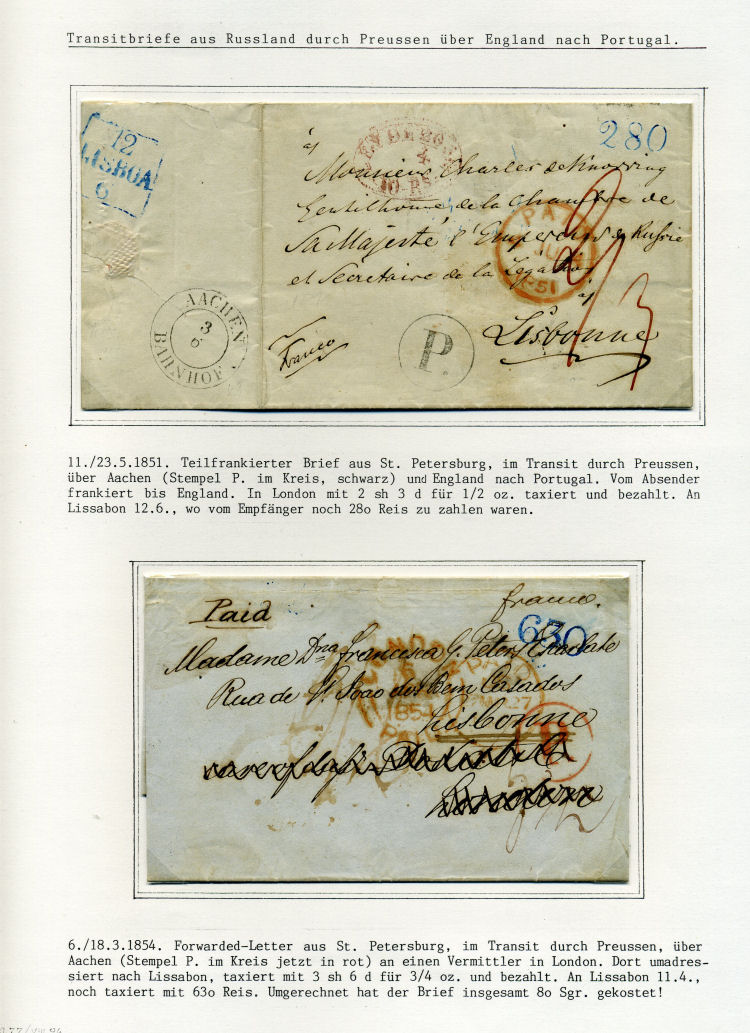 Transitbriefe aus Russland durch Preussen über England nach Portugal.
12
LISBOA
6
4
10-RS.
280
à
Monsieur Charles de Knorring
Gentilhomme de la Chambre de
Sa Majesté l'Empereur de Russie
et Sécretaire de la Légation
à
Lisbonne
Franco
PAID
1851
AACHEN
3
6
BAHNHOF
P.
11./23.5.1851. Teilfrankierter Brief aus St. Petersburg, im Transit durch Preussen,
über Aachen (Stempel P. im Kreis, schwarz) und England nach Portugal. Vom Absender
frankiert bis England. In London mit 2 sh 3 d für 1/2 oz. taxiert und bezahlt. An
Lissabon 12.6., wo vom Empfänger noch 28o Reis zu zahlen waren.
Paid
franco.
630
Madame Dna Francisca G. Peters
Rua de S. Joao dos Bem Casados
Lisbonne
PAID
27
1854
P
6./18.3.1854. Forwarded-Letter aus St. Petersburg, im Transit durch Preussen, über
Aachen (Stempel P. im Kreis jetzt in rot) an einen Vermittler in London. Dort umadres-
siert nach Lissabon, taxiert mit 3 sh 6 d für 3/4 oz. und bezahlt. An Lissabon 11.4.,
noch taxiert mit 63o Reis. Umgerechnet hat der Brief insgesamt 8o Sgr. gekostet!